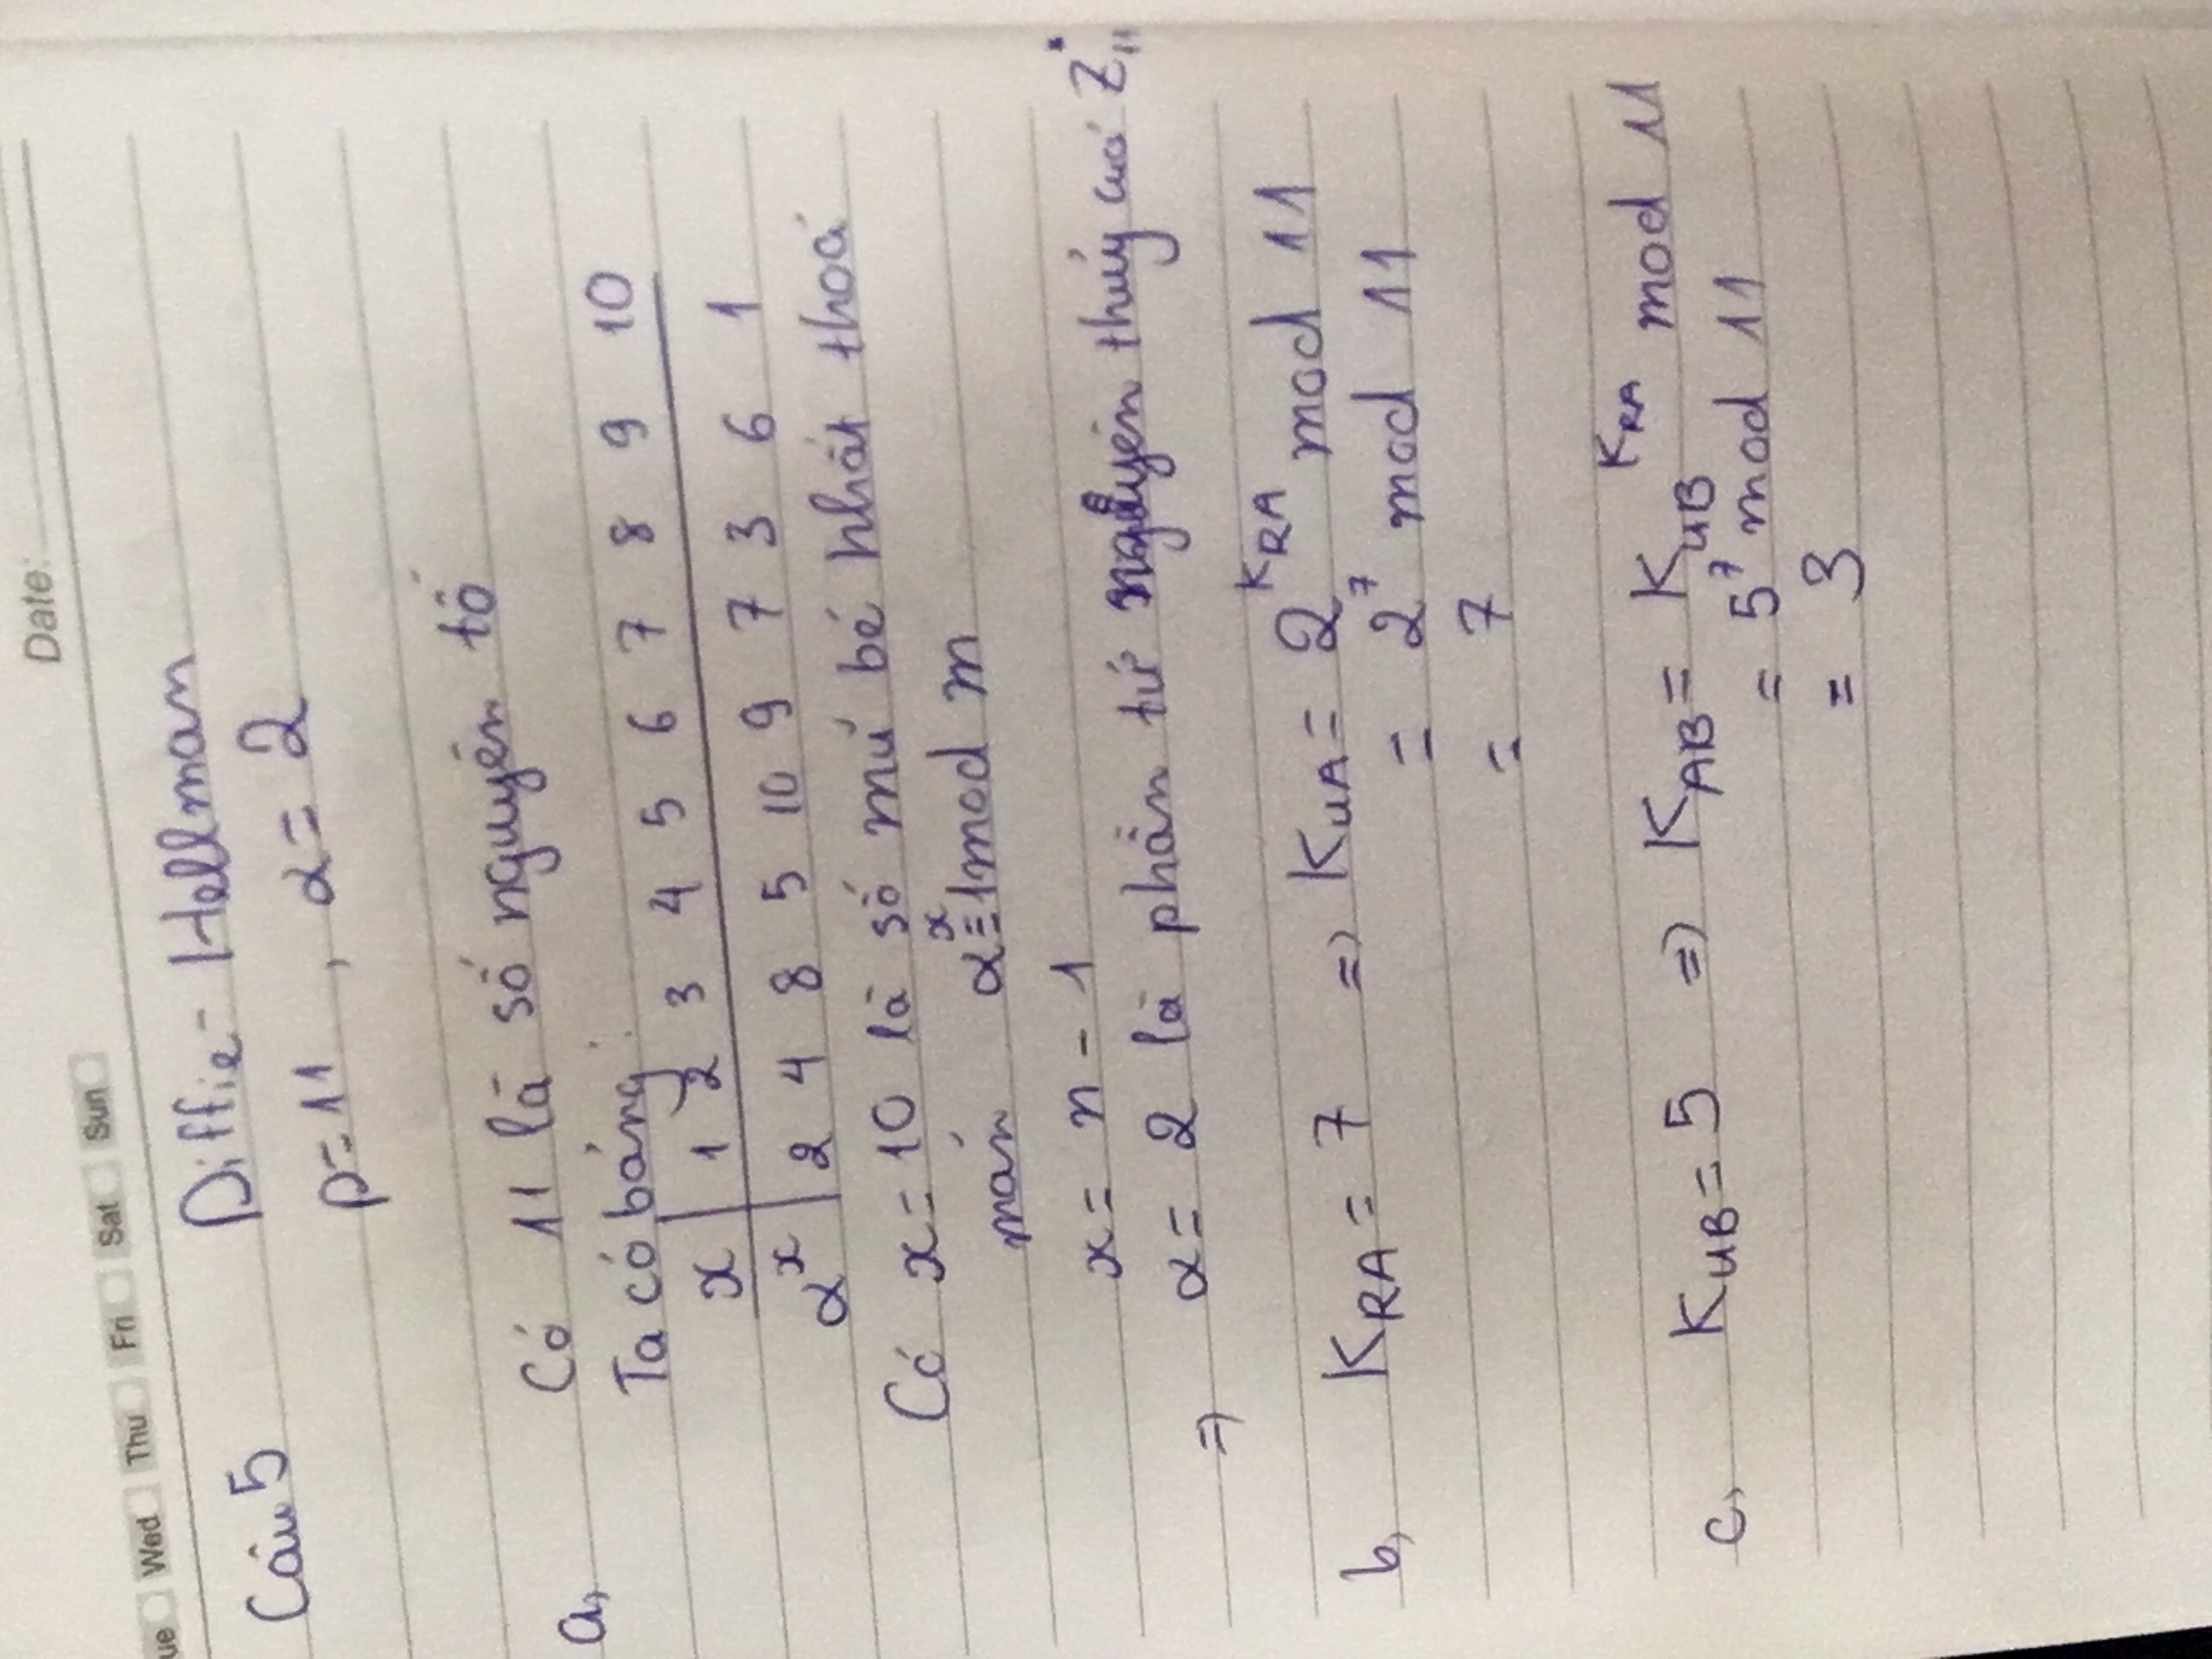 Date:
ue Wed Thu Fri Sat Sun
Câu 5 Diffie - Hellman
p = 11 , α = 2
a, Có 11 là số nguyên tố
Ta có bảng:
x | 1 2 3 4 5 6 7 8 9 10
α^x | 2 4 8 5 10 9 7 3 6 1
Có x = 10 là số mũ bé nhất thoả
mãn α^x ≡ 1 mod m
x = n - 1
=> α = 2 là phần tử nguyên thủy của Z*₁₁
b, K_RA = 7 => K_UA = 2^K_RA mod 11
= 2^7 mod 11
= 7
c, K_UB = 5 => K_AB = K_UB^K_RA mod 11
= 5^7 mod 11
= 3